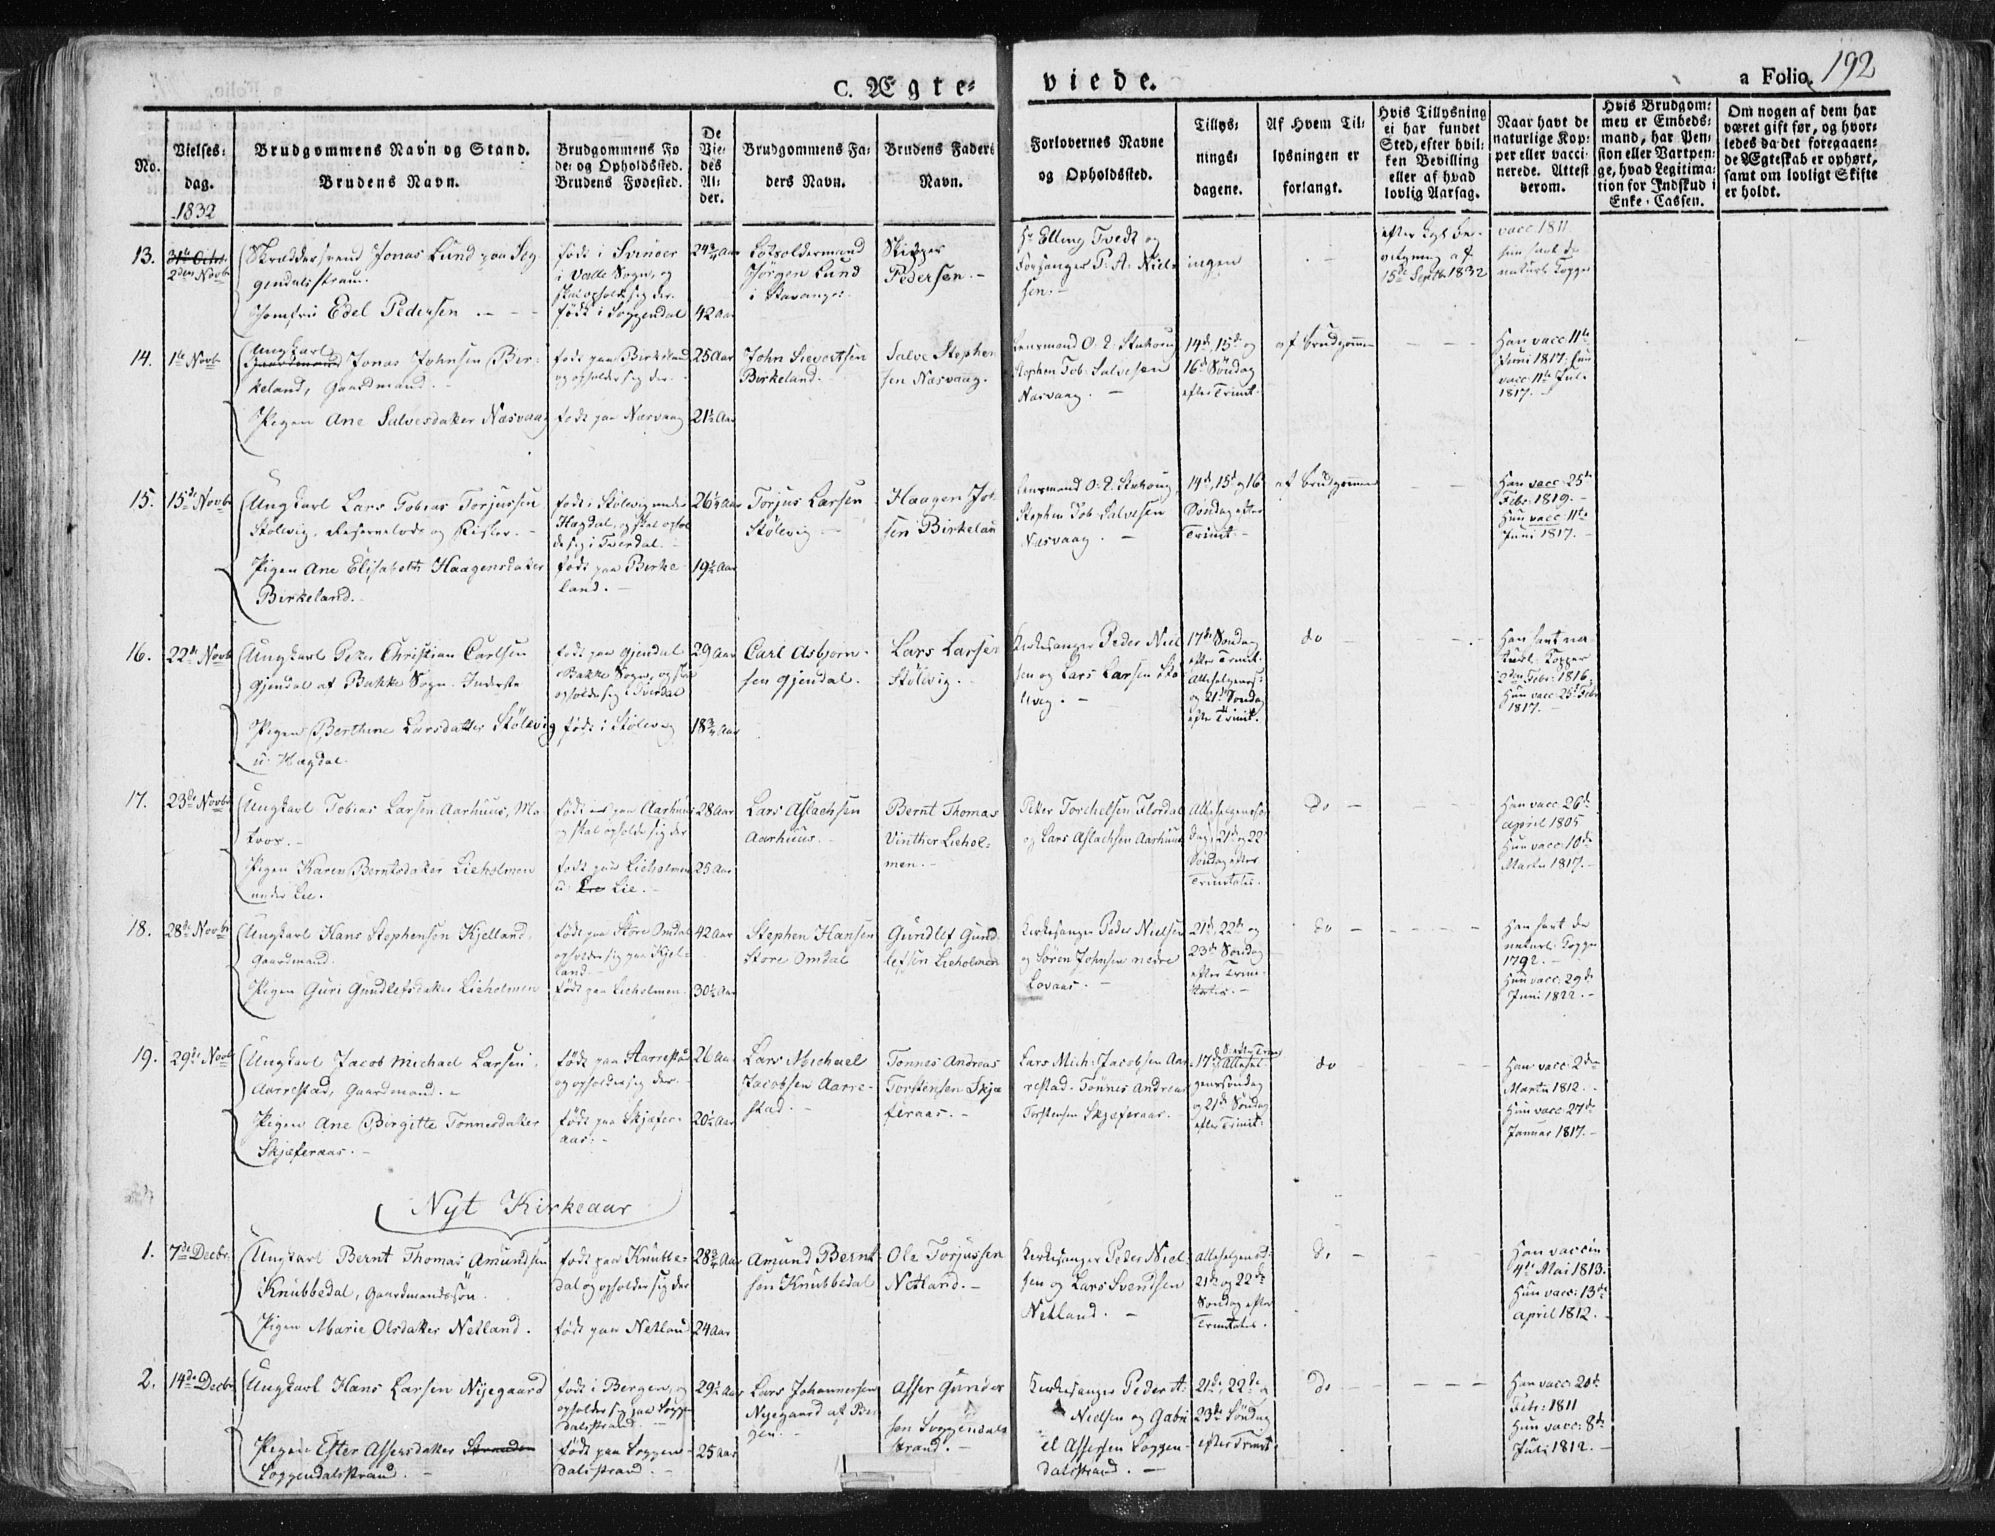 C. Ægte= viede. a Folio. 192
No.
Vielses=
dag.
1832
Brudgommens Navn og Stand.
Brudens Navn.
Brudgommens Fø
de= og Opholdssted.
Brudens Fødested.
De
Vie=
des
Al=
der.
Brudgommens Fa=
ders Navn.
Brudens Faders
Navn.
Forlovernes Navne
og Opholdssted.
Tillys=
nings=
dagene.
Af Hvem Til=
lysningen er
forlangt.
Hvis Tillysning
ei har fundet
Sted, efter hvil=
ken Bevilling
eller af hvad
lovlig Aarsag.
Naar havt de
naturlige Kop=
per eller vacci=
nerede. Attest
derom.
Hvis Brudgom=
men er Embeds=
mand, har Pen=
sion eller Vartpen=
ge, hvad Legitima=
tion for Indskud i
Enke=Cassen.
Om nogen af dem har
været gift før, og hvor=
ledes da det foregaaen=
de Ægteskab er ophørt,
samt om lovligt Skifte
er holdt.
13.
2den Novb
Skrædersvend Jonas Lund paa Sog
gendalsstrand.
Jomfru Edel Pedersen
født i Svinøer
i Valle Sogn, og
skal opholde sig der.
født i Soggendal
24¾ Aar
42 Aar
Lotsoldermand
Jørgen Lund
i Stavanger.
Pedersen.
Hr Elling Tvedt og
Forsanger P. A. Niel=
sen.
ingen
efter Kgl. Be=
vilgning af
15de Septb 1832
vacc 1811
hun havt de
naturl. Kopper
14.
1te Novb
Ungkarl Jonas Johnsen Bir=
keland, Gaardmand.
Pigen Ane Salvesdatter Næsvaag
født paa Birkeland
og opholder sig der.
født paa Næsvaag
25 Aar
21½ Aar
John Sievertsen
Birkeland.
Salve Stephen
sen Næsvaag.
Lensmand O. E.
Stephen Tob. Salvesen
Næsvaag.
14de, 15de og
16de Søndag
efter Trinit.
af Brudgommen
Han vacc 11te
Juni 1817. hun
vacc. 11te Juli
1817.
15.
15de Novb
Ungkarl Lars Tobias Torjussen
Stølevig, Reservelods og Fisker.
Pigen Ane Elisabeth Haagensdatter
Birkeland.
født i Stølevig under
Hægdal, og skal ophol
de sig i Tverdal.
født paa Birke
land.
26½ Aar
19½ Aar
Torjus Larsen
Stølevig
Haagen Joh
sen Birkelan
Lensmand O. E.
Stephen Tob. Salvesen
Næsvaag.
14de, 15de og 16de
Søndag efter
Trinit.
af Brudgommen
Han vacc 25de
Febr: 1819.
Hun vacc 11te
Juni 1817.
16.
22de Novb
Ungkarl Peter Christian Carlsen
Gjendal af Bakke Sogn. Inderste
Pigen Berthine Larsdatter Stølevig
u. Hægdal.
født paa Gjendal
Bakke Sogn, og skal
opholde sig i Tverdal
født i Stølevig
29 Aar
18¾ Aar
Carl Asbjørn=
sen Gjendal.
Lars Larsen
Stølevig.
Kirkesanger Peder Niel
sen og Lars Larsen Stø
levig.
17de Søndag
efter Trinit.
Allehelgens
og 21de Søndag
efter Trinit.
do
Han havt na=
turl. Kopper
2den Febr: 1816,
Hun vacc 25de Febr
1817.
17.
23de Novb
Ungkarl Tobias Larsen Aarhuus, Ma=
tros.
Pigen Karen Berntsdatter Lieholmen
under Lie.
født paa Aarhuus
og skal opholde sig der
født paa Lieholmen
u. Lie.
28 Aar
25 Aar
Lars Aslachsen
Aarhuus.
Bernt Thomas
Vinther Liehol=
men.
Peter Torchelsen Flordal
og Lars Aslachsen Aarhuus
Allehelgenssøn
dag, 21de og 22de
Søndag efter
Trinitatis.
do
Han vacc 26de
April 1805
Hun vacc: 10de
Marts 1817.
18.
28de Novb
Ungkarl Hans Stephensen Kjelland,
Gaardmand.
Pigen Guri Gundlefsdatter Lieholmen
født paa Store Omdal
opholder sig paa Kjel=
land.
født paa Lieholmen
42 Aar
30½ Aar
Stephen Hansen
Store Omdal
Gundlef Gund
lefsen Lieholmen
Kirkesanger Peder Nielsen
og Søren Johnsen nedre
Lovaas.
21de, 22de og
23de Søndag
efter Trini=
tatis.
do
Han havt de
naturl. Kopper
1792.
Hun vacc: 29de
Juni 1822.
19.
29de Novb
Ungkarl Jacob Michael Larsen
Aarrestad, Gaardmand.
Pigen Ane Birgitte Tonnesdatter
Skjæferaas.
født paa Aarrestad
og opholder sig der.
født paa Skjæfer=
aas.
26 Aar
20½ Aar
Lars Michael
Jacobsen Aarre=
stad.
Tonnes Andreas
Torstensen Skjæ
feraas.
Lars Mich: Jacobsen Aar
restad. Tönnes Andreas
Torstensen Skjæferaas.
17de S. efter Trinit
Allehel=
genssøndag
og 21de Søndag
efter Trinit:
do
Han vacc: 2den
Marts 1812.
Hun vacc: 27de
Januar 1817.
Nyt Kirkeaar
1.
7de Decbr.
Ungkarl Bernt Thomas Amundsen
Knubbedal, Gaardmandssøn.
Pigen Marie Olsdatter Netland.
født paa Knubbe=
dal og opholder sig der
født paa Netland
28¾ Aar
24 Aar
Amund Bernt
sen Knubbedal
Ole Torjussen
Netland.
Kirkesanger Peder Niel=
sen og Lars Svendsen
Netland.
21de og 22de
Søndag efter
Trinitatis.
do
Han vaccin
4de Mai 1813.
Hun vacc: 13de
April 1812.
2.
14de Decbr
Ungkarl Hans Larsen Nijegaard
Pigen Ester Assersdatter
Soggendalsstrand.
født i Bergen, og
opholder sig paa Sogge
dalsstrand.
født paa Soggen=
dalsstrand.
29½ Aar
25 Aar
Lars Johannesen
Nyegaard af Ber
gen.
Asser Gunder
sen Soggendals
strand.
Kirkesanger Peder A.
Nielsen og Gabri
el Assersen Soggen=
dalsstrand.
21de, 22de og
23de Søndag
efter Trinit
do
Han vacc: 20de
Febr: 1811
Hun vacc: 8de
Juli 1812.